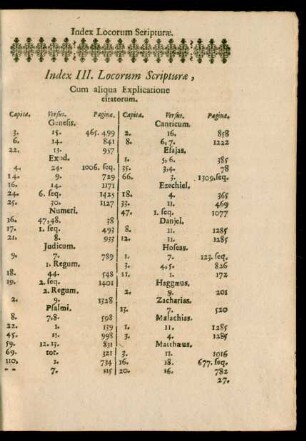 Index Locorum Scripturæ.
Index III. Locorum Scripturæ,
Cum aliqua Explicatione
citatorum.
Capita. Versus. Pagina.
Genesis.
3. 15. 465. 499
6. 14. 841
22. 13. 957
Exod.
4. 24. 1006. seq.
14. 9. 729
16. 14. 1171
24. 6. seq. 1425
25. 10. 1127
Numeri.
16. 47,48. 58
17. 1. seq. 495
21. 8. 955
Judicum.
9. 7. 789
1. Regum.
18. 44. 548
19. 2. seq. 1401
2. Regum.
2. 9. 1528
Psalmi.
8. 7.8. 598
22. 1. 139
45. 11. 998
59. 12.15. 831
69. tot. 321
110. 2. 734
7. 115
Capita. Versus. Pagina.
Canticum.
2. 16. 858
8. 6,7. 1222
Esajas.
1. 5,6. 385
35. 3.4. 78
66. 3. 1309, seq.
Ezechiel.
18. 4. 365
33. 11. 469
47. 1. seq. 1077
Daniel.
8. 11. 1285
12. 11. 1285
Hoseas.
1. 7. 125. seq.
3. 4.5. 826
11. 1. 172
Haggæus.
2. 9. 201
Zacharias.
13. 7. 520
Malachias.
1. 11. 1285
4. 2. 1285
Matthæus.
3. 11. 1016
16. 18. 677. seq.
20. 16. 782
27.